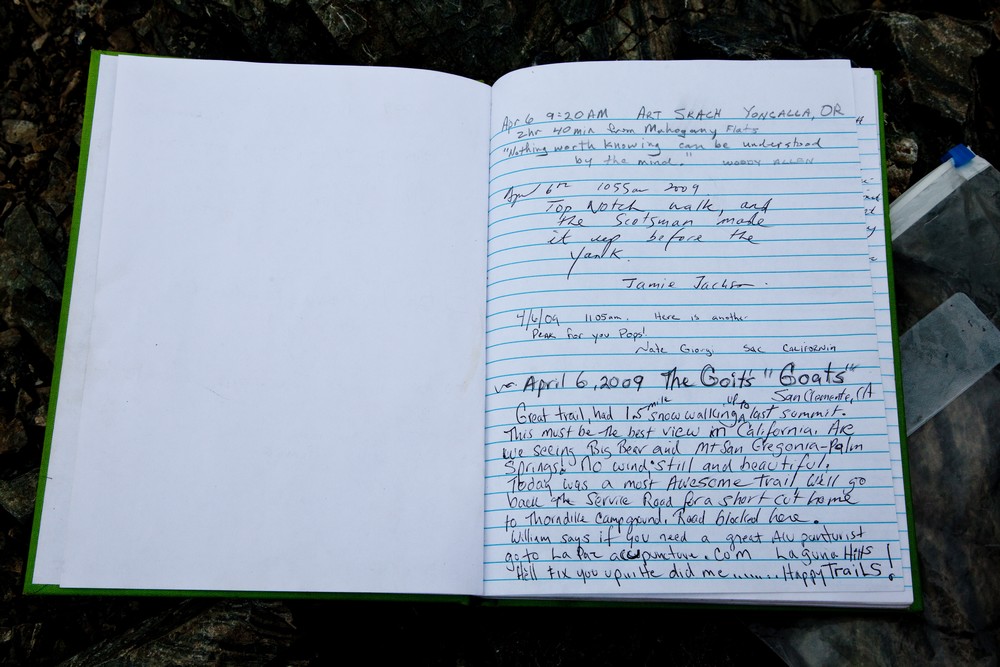 Apr 6 9:20AM ART SKACH YONCALLA, OR
2hr 40min from Mahogany Flats
"Nothing worth knowing can be understood
by the mind." WOODY ALLEN
April 6th 1055am 2009
Top Notch walk, and
the Scotsman made
it up before the
Yank.
Jamie Jackson.
4/6/09 1105am. Here is another
Peak for you Pops!
Nate Giorgi Sac California
April 6, 2009 The Goit's "Goats"
San Clemente, CA
Great trail, had 1.5 mile snow walking up to last summit.
This must be the best view in California. Are
we seeing Big Bear and Mt San Gregonia-Palm
Springs! No wind, still and beautiful.
Today was a most Awesome trail We'll go
back the Service Road for a short cut home
to Thorndike Campground. Road blocked here.
William says if you need a great Acupunturist
go to La Paz acupuncture.com Laguna Hills
He'll fix you up... He did me....... Happy Trails!